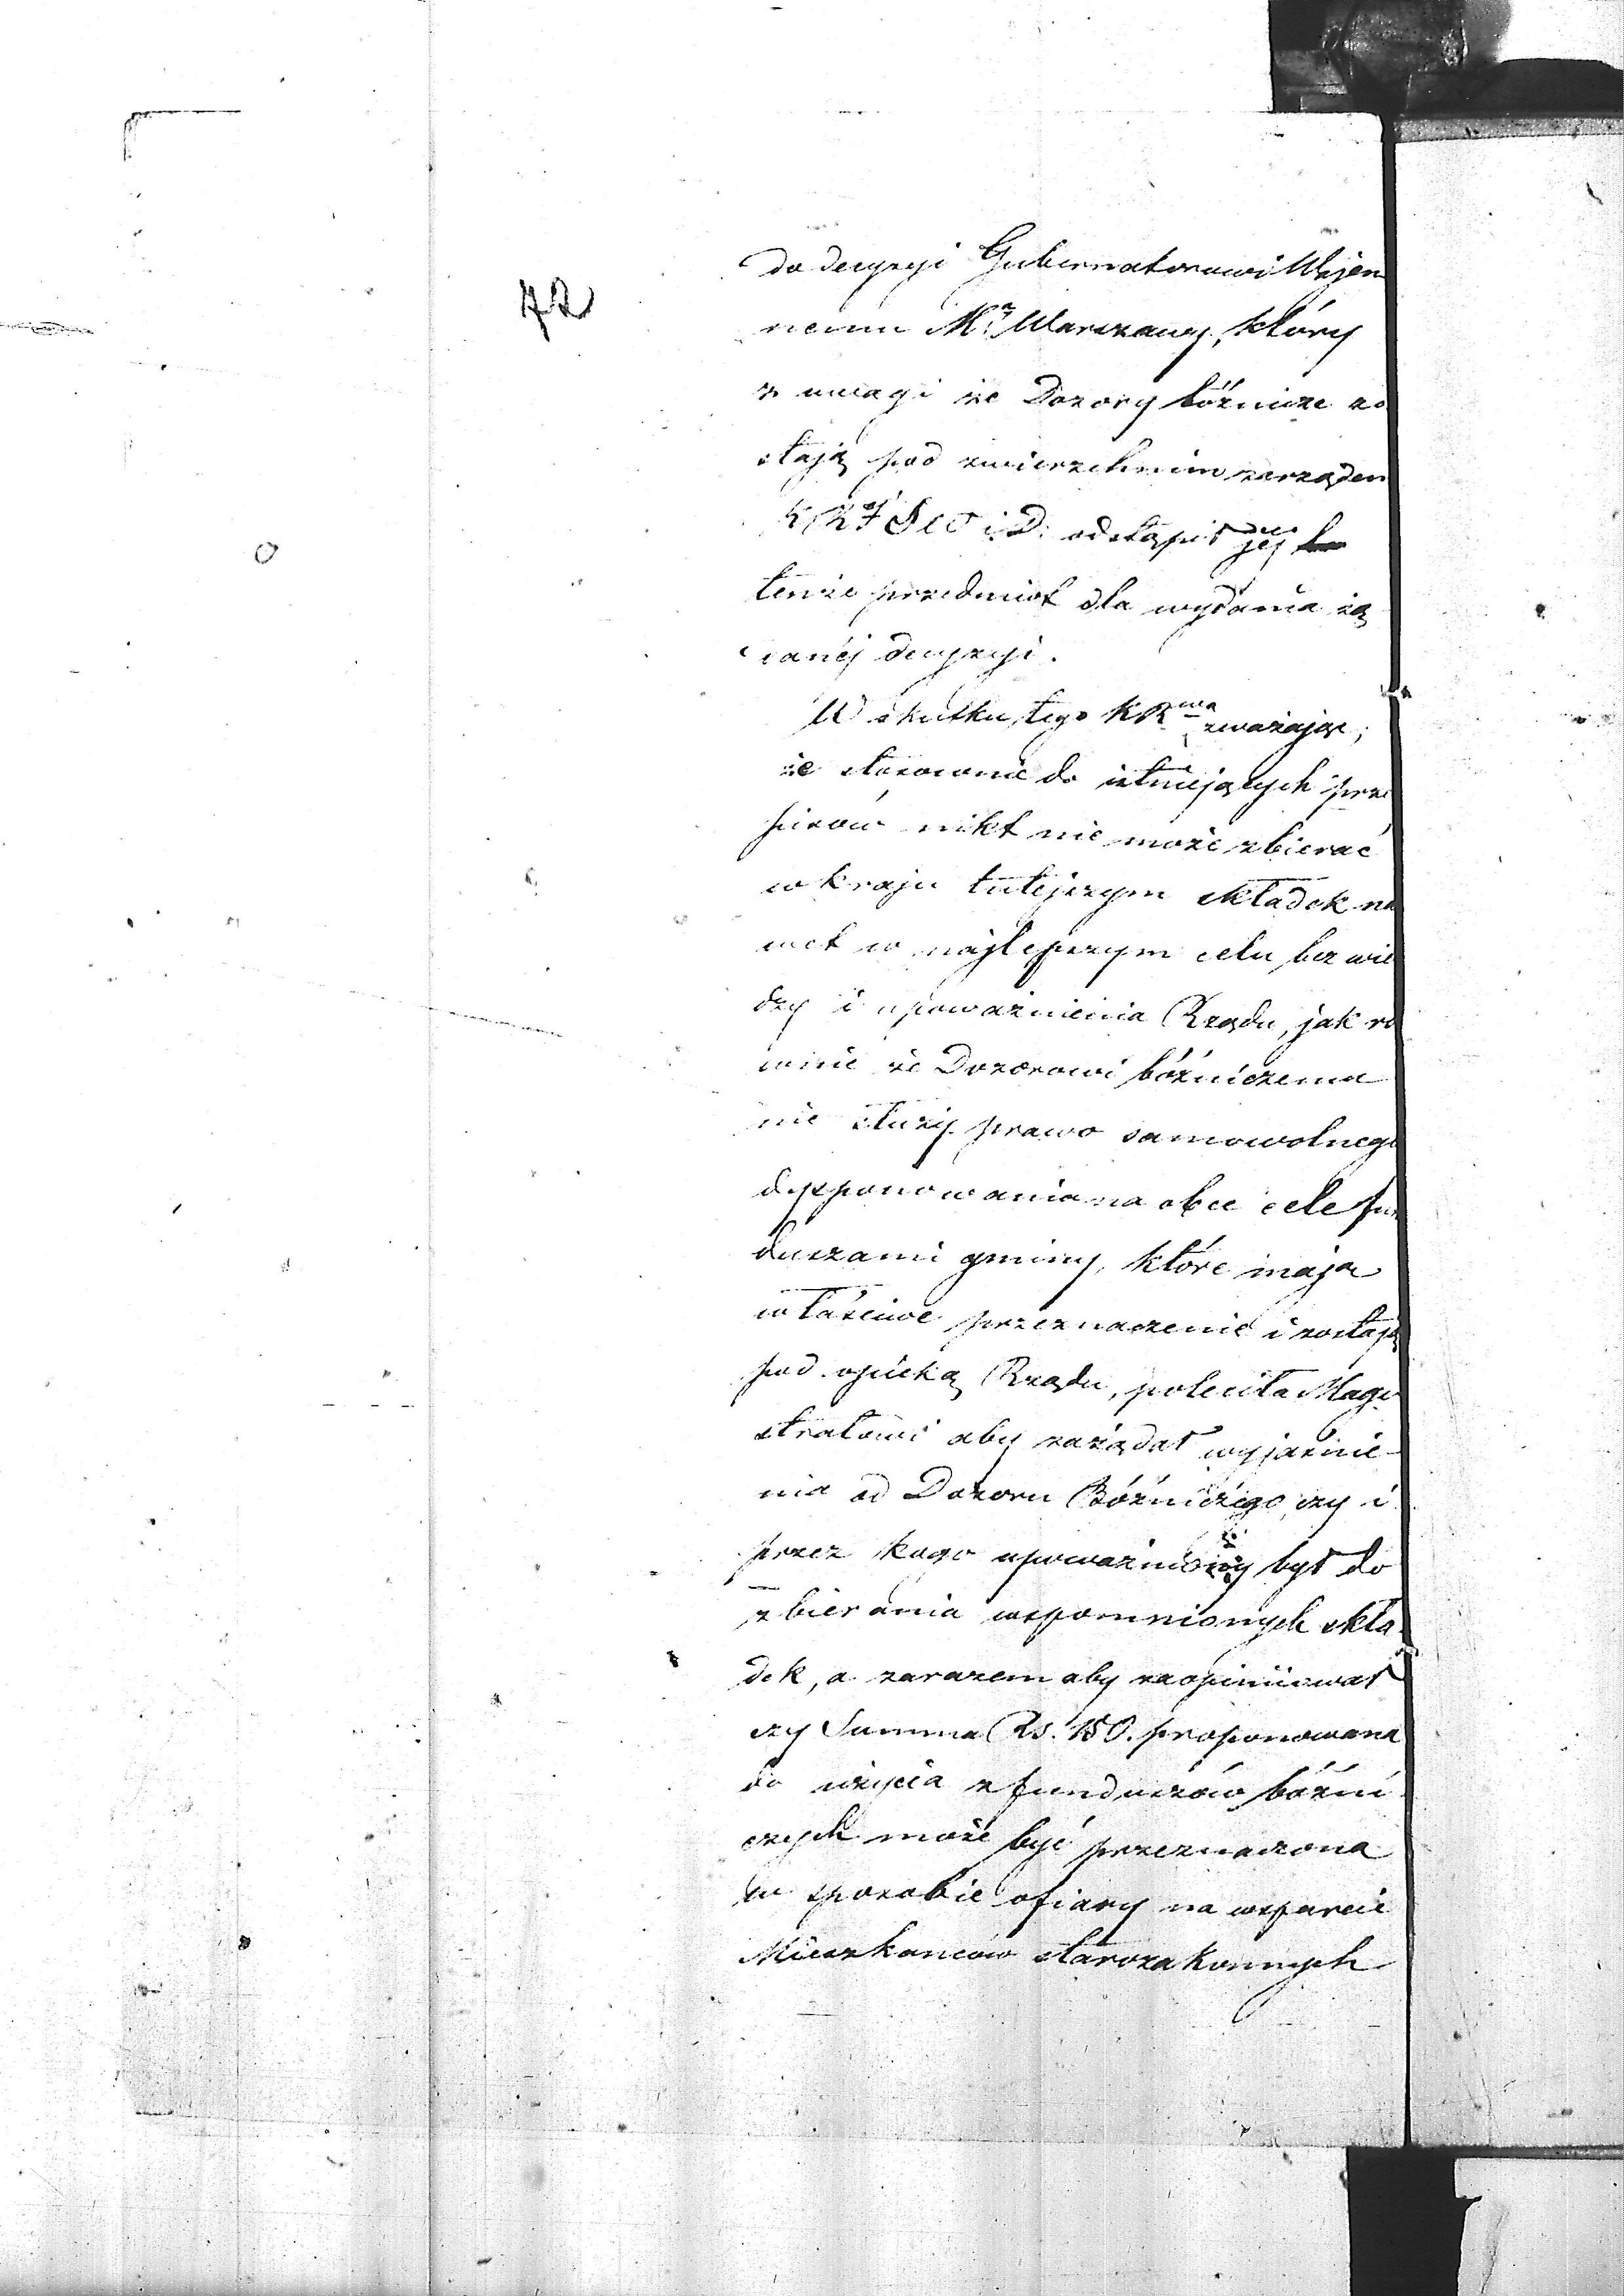 42
do decyzyi Gubernatorowi Wojen
nemu Mta Warszawy, który
z uwagi że Dozory bóżnicze zo
stają pod zwierzchnim zarządem
KR SW i D. odstąpił jej
tenże przedmiot dla wydania żą
danéj decyzyi.
W skutku tego KRwa zważając,
że stosownie do istniejących prze
pisów nikt nie może zbierać
w kraju tutejszym składek na
wet w najlepszym celu bez wie
dzy i upoważnienia Rządu, jak ró
wnie że Dozorowi bóżniczemu
nie służy prawo samowolnego
dysponowania na obce cele fun
duszami gminy, które mają
właściwe przeznaczenie i zostają
pod opieką Rządu, poleciła Magi
stratowi aby zażądał wyjaśnie-
nia od Dozoru Bóżniczego, czy i
przez kogo upoważniony był do
zbierania wspomnionych skła
dek, a zarazem aby zaopiniował
czy Summa Rs. 150. proponowana
do użycia z funduszów bóżni
czych może być przeznaczona
w sposobie ofiary na wsparcie
Mieszkańców starozakonnych